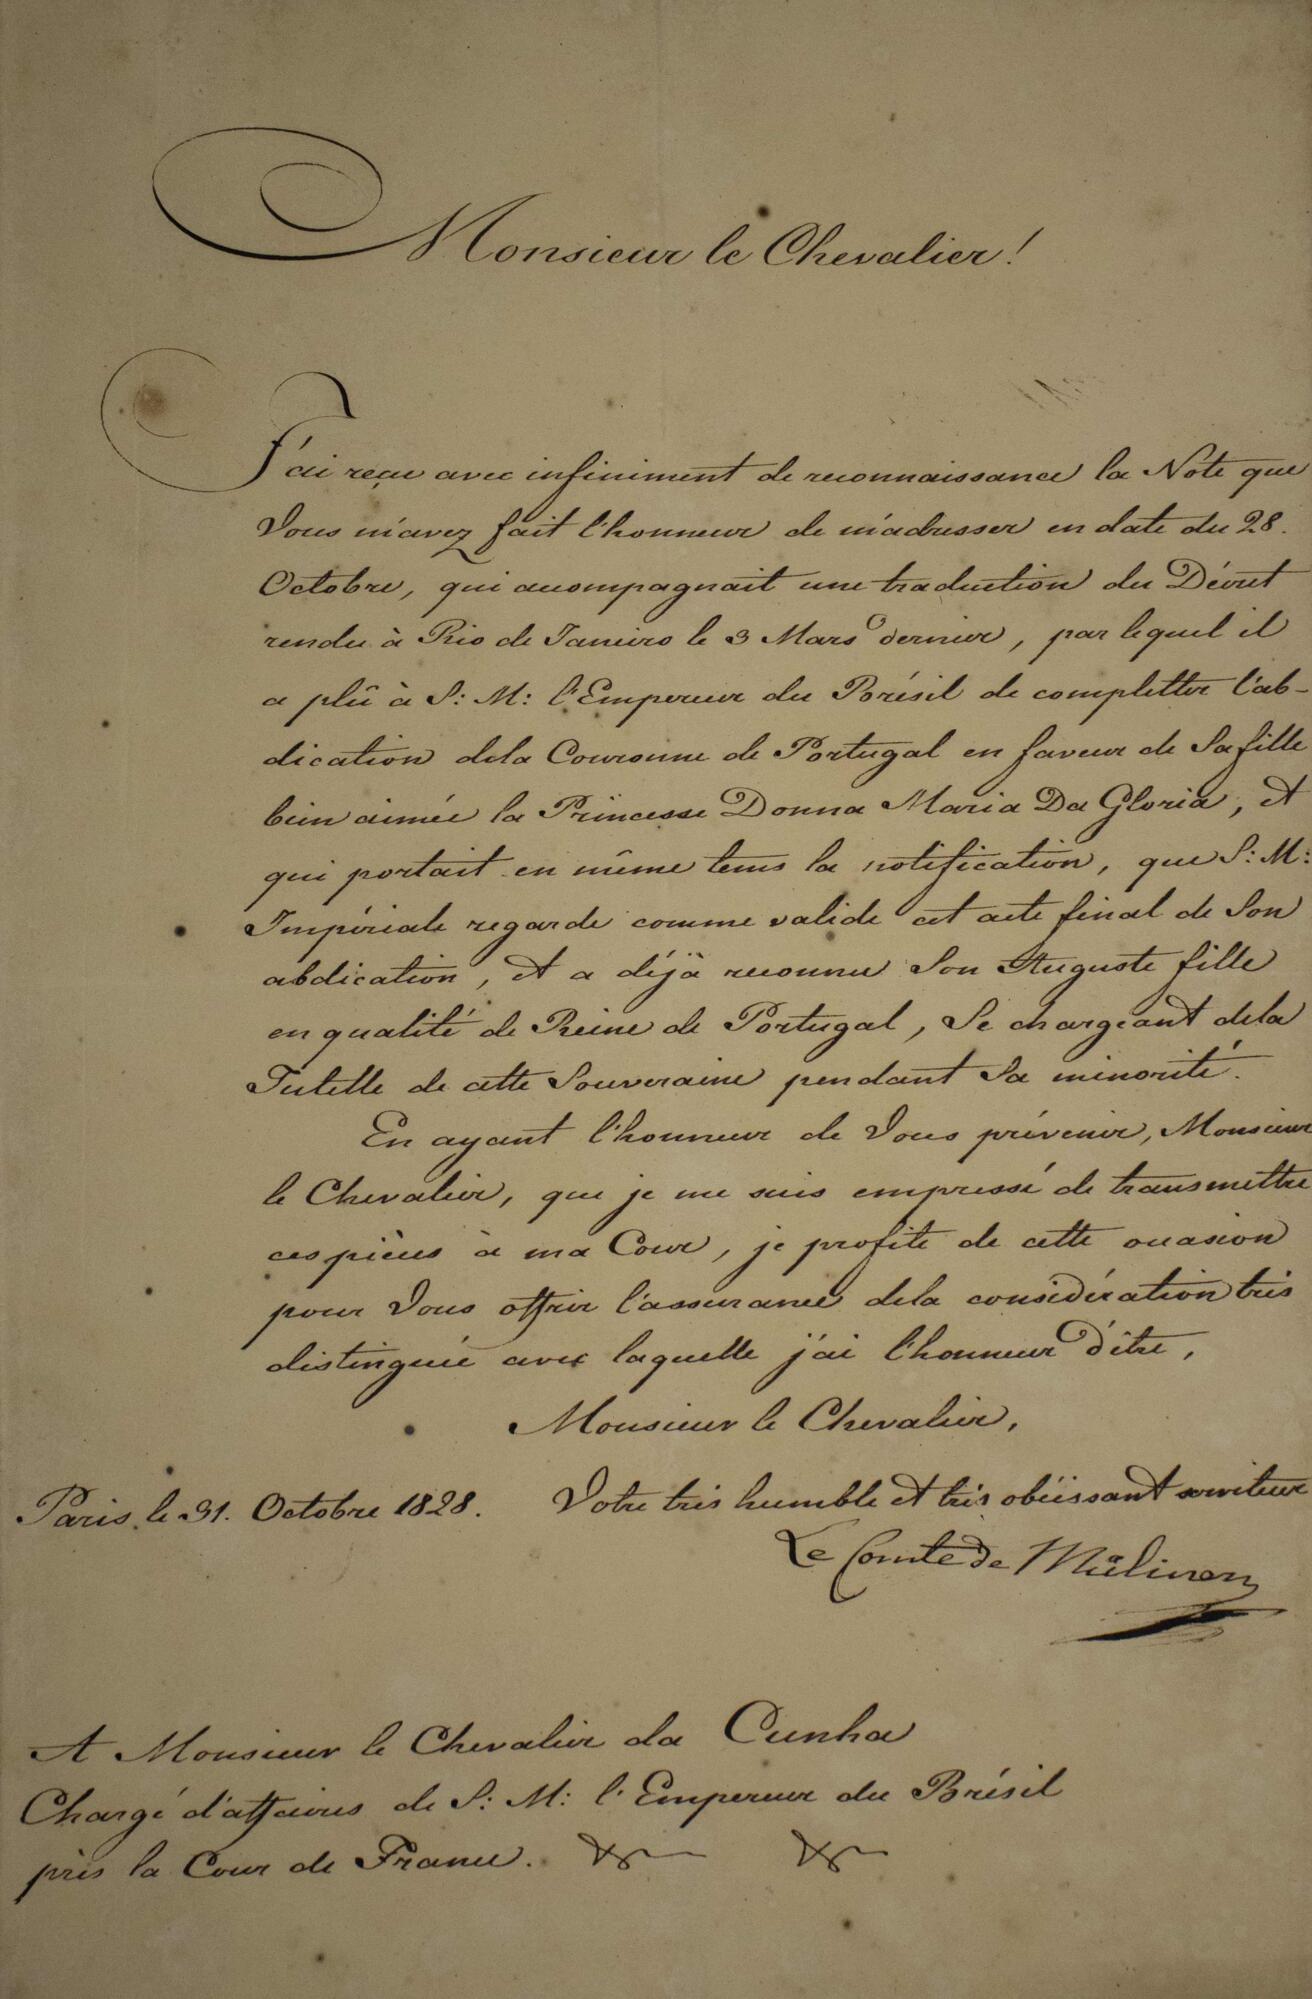 Monsieur le Chevalier!
J'ai reçu avec infiniment de reconnaissance la Note que
Vous m'avez fait l'honneur de m'adresser en date du 28.
Octobre, qui accompagnait une traduction du Décret
rendu à Rio de Janeiro le 3 Mars dernier, par lequel il
a plû à S: M: l'Empereur du Brésil de completter l'ab-
dication dela Couronne de Portugal en faveur de Sa fille
bien aimée la Princesse Donna Maria Da Gloria, et
qui portait en même tems la notification, que S: M:
Impériale regarde comme valide cet acte final de Son
abdication, et a déjà reconnu Son Auguste fille
en qualité de Reine de Portugal, Se chargeant dela
Tutelle de cette Souveraine pendant Sa minorité.
En ayant l'honneur de Vous prévenir, Monsieur
le Chevalier, que je me suis empressé de transmettre
ces pièces à ma Cour, je profite de cette occasion
pour Vous offrir l'assurance dela considération très
distinguée avec laquelle j'ai l'honneur d'être,
Monsieur le Chevalier,
Paris, le 31. Octobre 1828. Votre très humble et très obéissant serviteur
Le Comte de Mülinen
A Monsieur le Chevalier da Cunha
Chargé d'affaires de S: M: l'Empereur du Brésil
près la Cour de France.